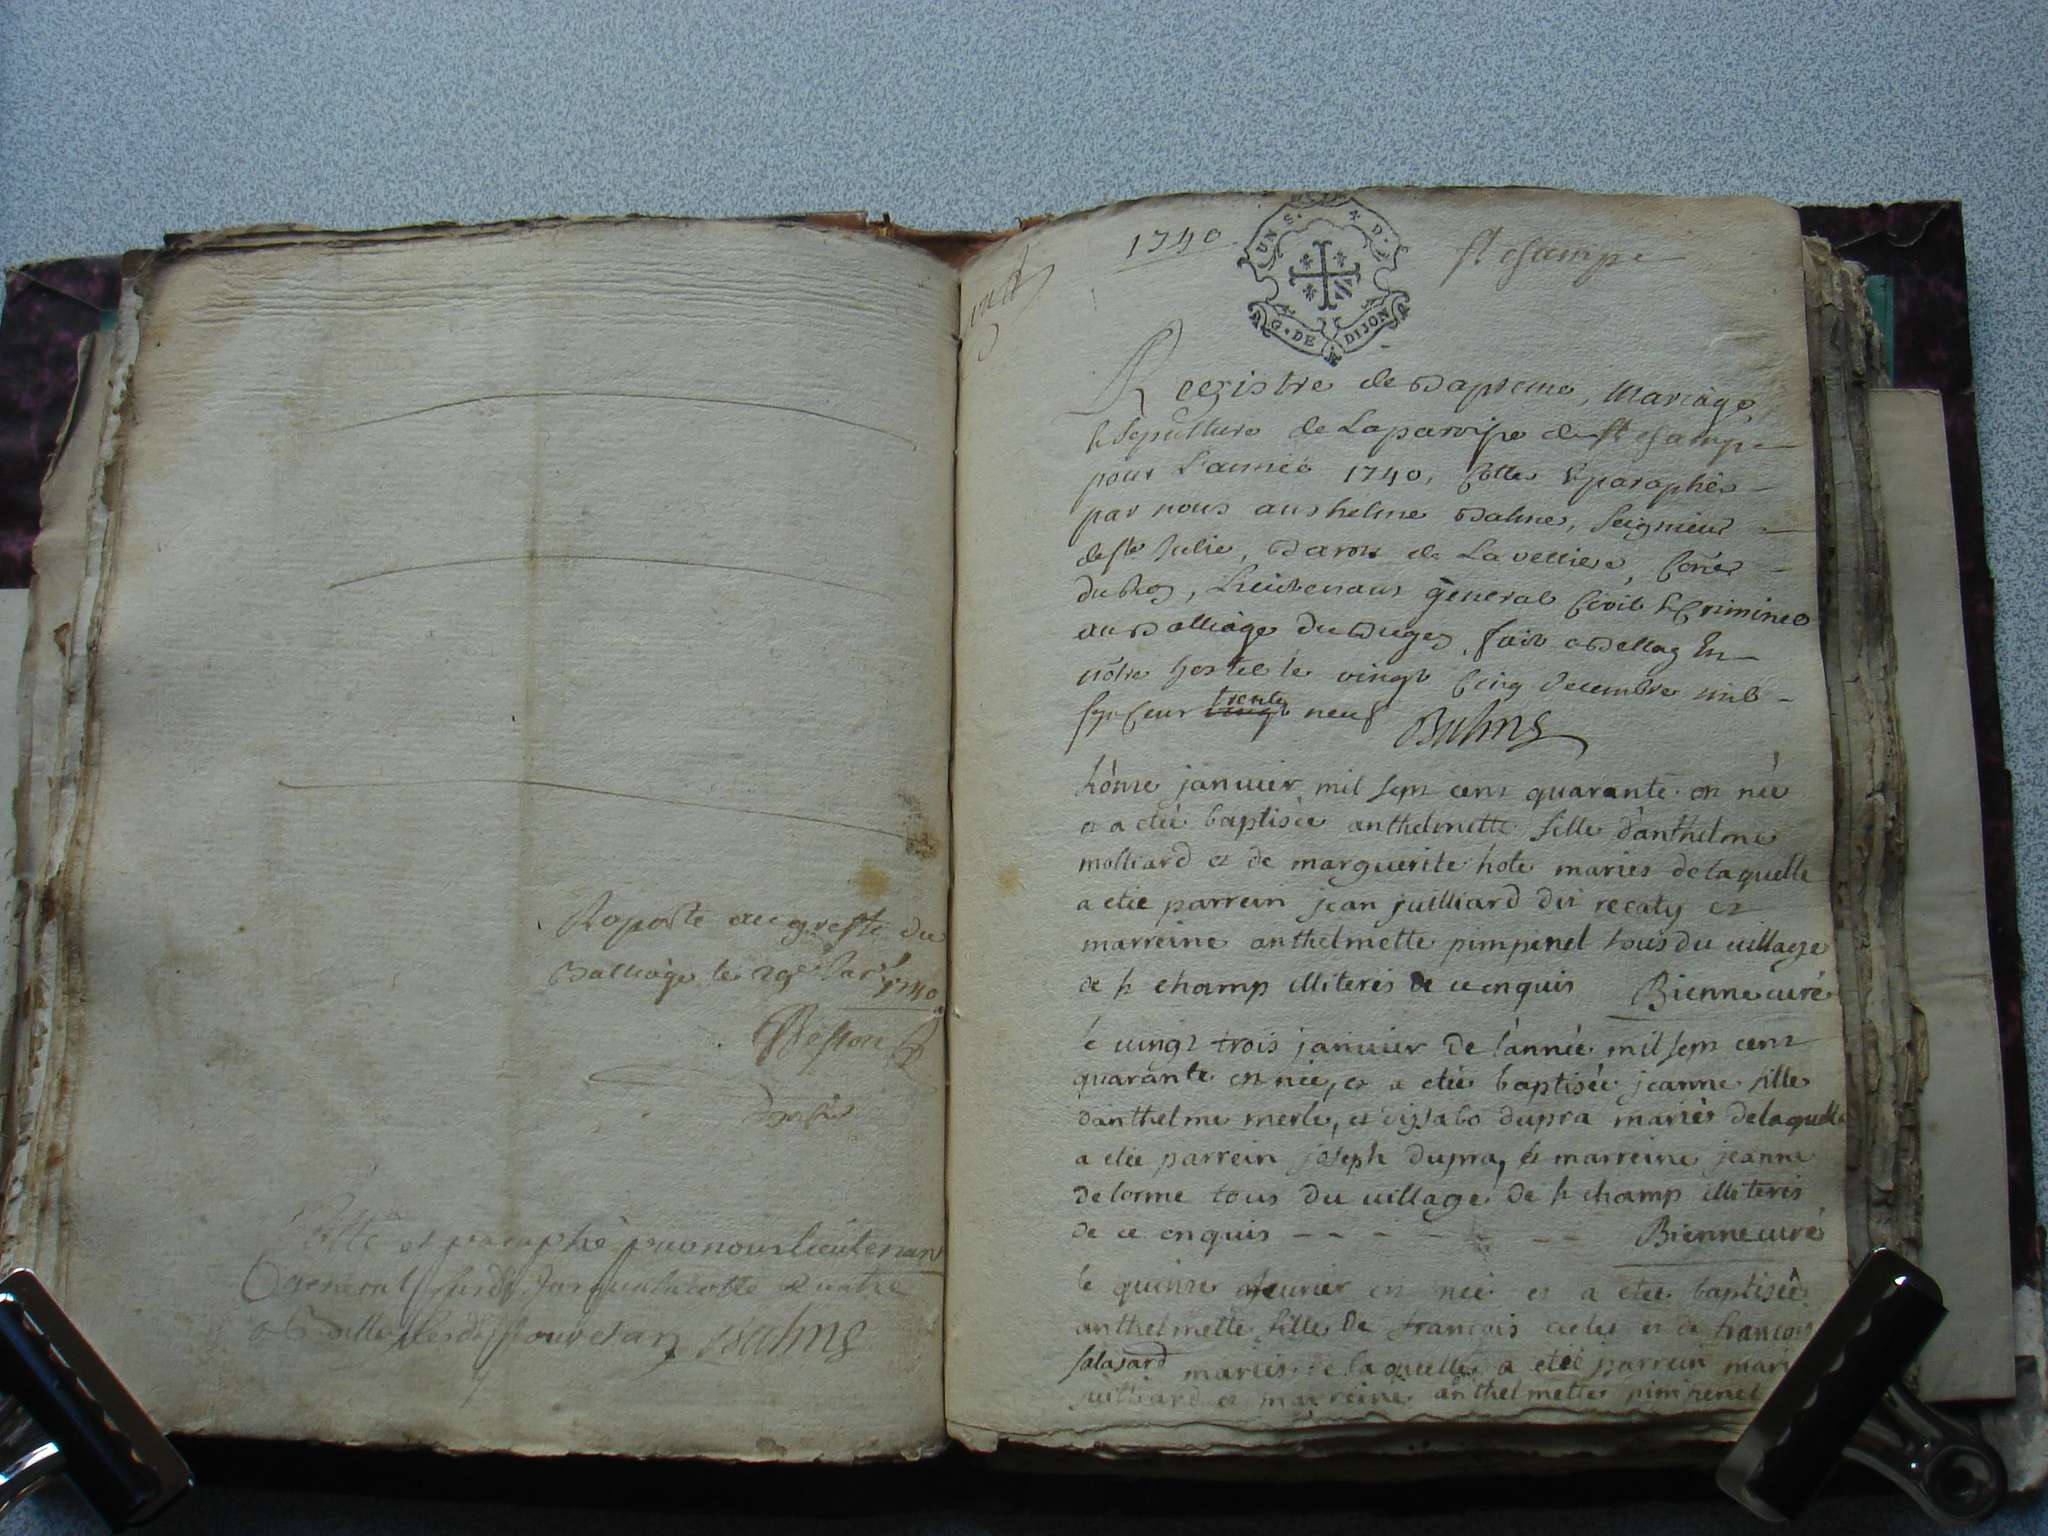 Raporté au greffe du
Balliage le 29e Jan.r
1740
Besson
Cotté et paraphé par nous lieutenan
General jusqua la cotte quatre
Balme
1740
UN S. D.
G. DE DIJON
st champ
Registre de Bapteme, Mariage,
& Sepulture de La paroisse de st champ
pour L'année 1740, Cottés & paraphés
par nous anthelme Balme, seigneur
de ste Julie, Baron de La velliere, Coner
du Roy, Lieutenant general Civil & Criminel
au Balliage du Bugey, fait a Belley En
nôtre hostel le vingt Cinq decembre mil
sept Cent trente neuf
Balme
l'onze januier mil sept cent quarante est née
et a etée baptisée anthelmette fille d'anthelme
molliard et de marguerite hote mariés de laquelle
a etée parrein jean juilliard dit recaty et
marreine anthelmette pimpinel tous du uillage
de st champ illiterés de ce enquis Bienne curé
le uingt trois januier de l'année mil sept cent
quarante est née, et a etée baptisée jeanne fille
d'anthelme merle, et dizabo dupra mariés de laquelle
a etée parrein joseph dupra, et marreine jeanne
delorme tous du uillage de st champ illiterés
de ce enquis - - - - - - - Bienne curé
le quinze feurier est née et a etée baptisée
anthelmette fille de françois et de françoi
salasard mariés de laquelle a etée parrein mari
juilliard et marreine anthelmette pimpenel